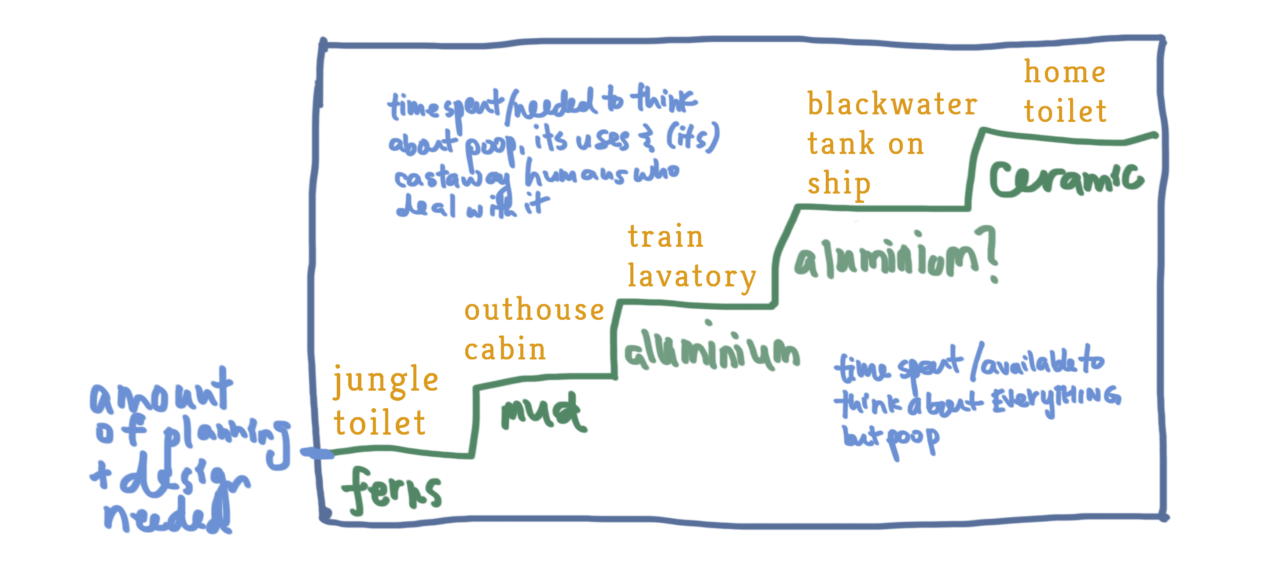 time spent/needed to think
about poop, its uses & (its)
castaway humans who
deal with it
home
toilet
ceramic
blackwater
tank on
ship
aluminium?
train
lavatory
aluminium
outhouse
cabin
mud
jungle
toilet
ferns
time spent/available to
think about EVERYTHING
but poop
amount
of planning
+ design
needed